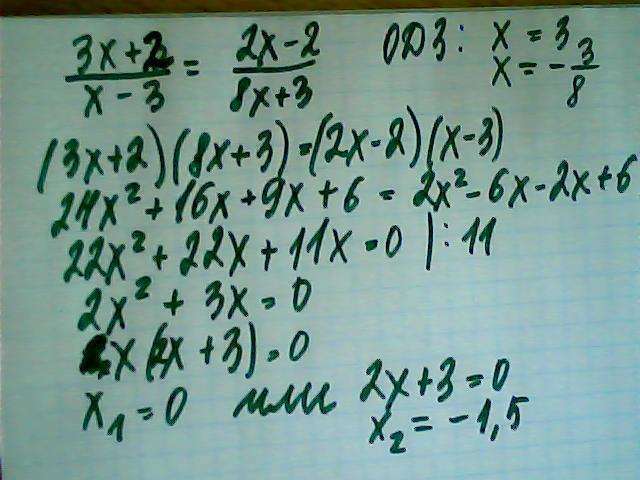 (3x+2)/(x-3) = (2x-2)/(8x+3) ОДЗ: x = 3 x = -3/8
(3x+2)(8x+3)=(2x-2)(x-3)
24x² + 16x + 9x + 6 = 2x² - 6x - 2x + 6
22x² + 22x + 11x = 0 |: 11
2x² + 3x = 0
x(2x + 3) = 0
x₁ = 0 или 2x + 3 = 0
x₂ = -1,5